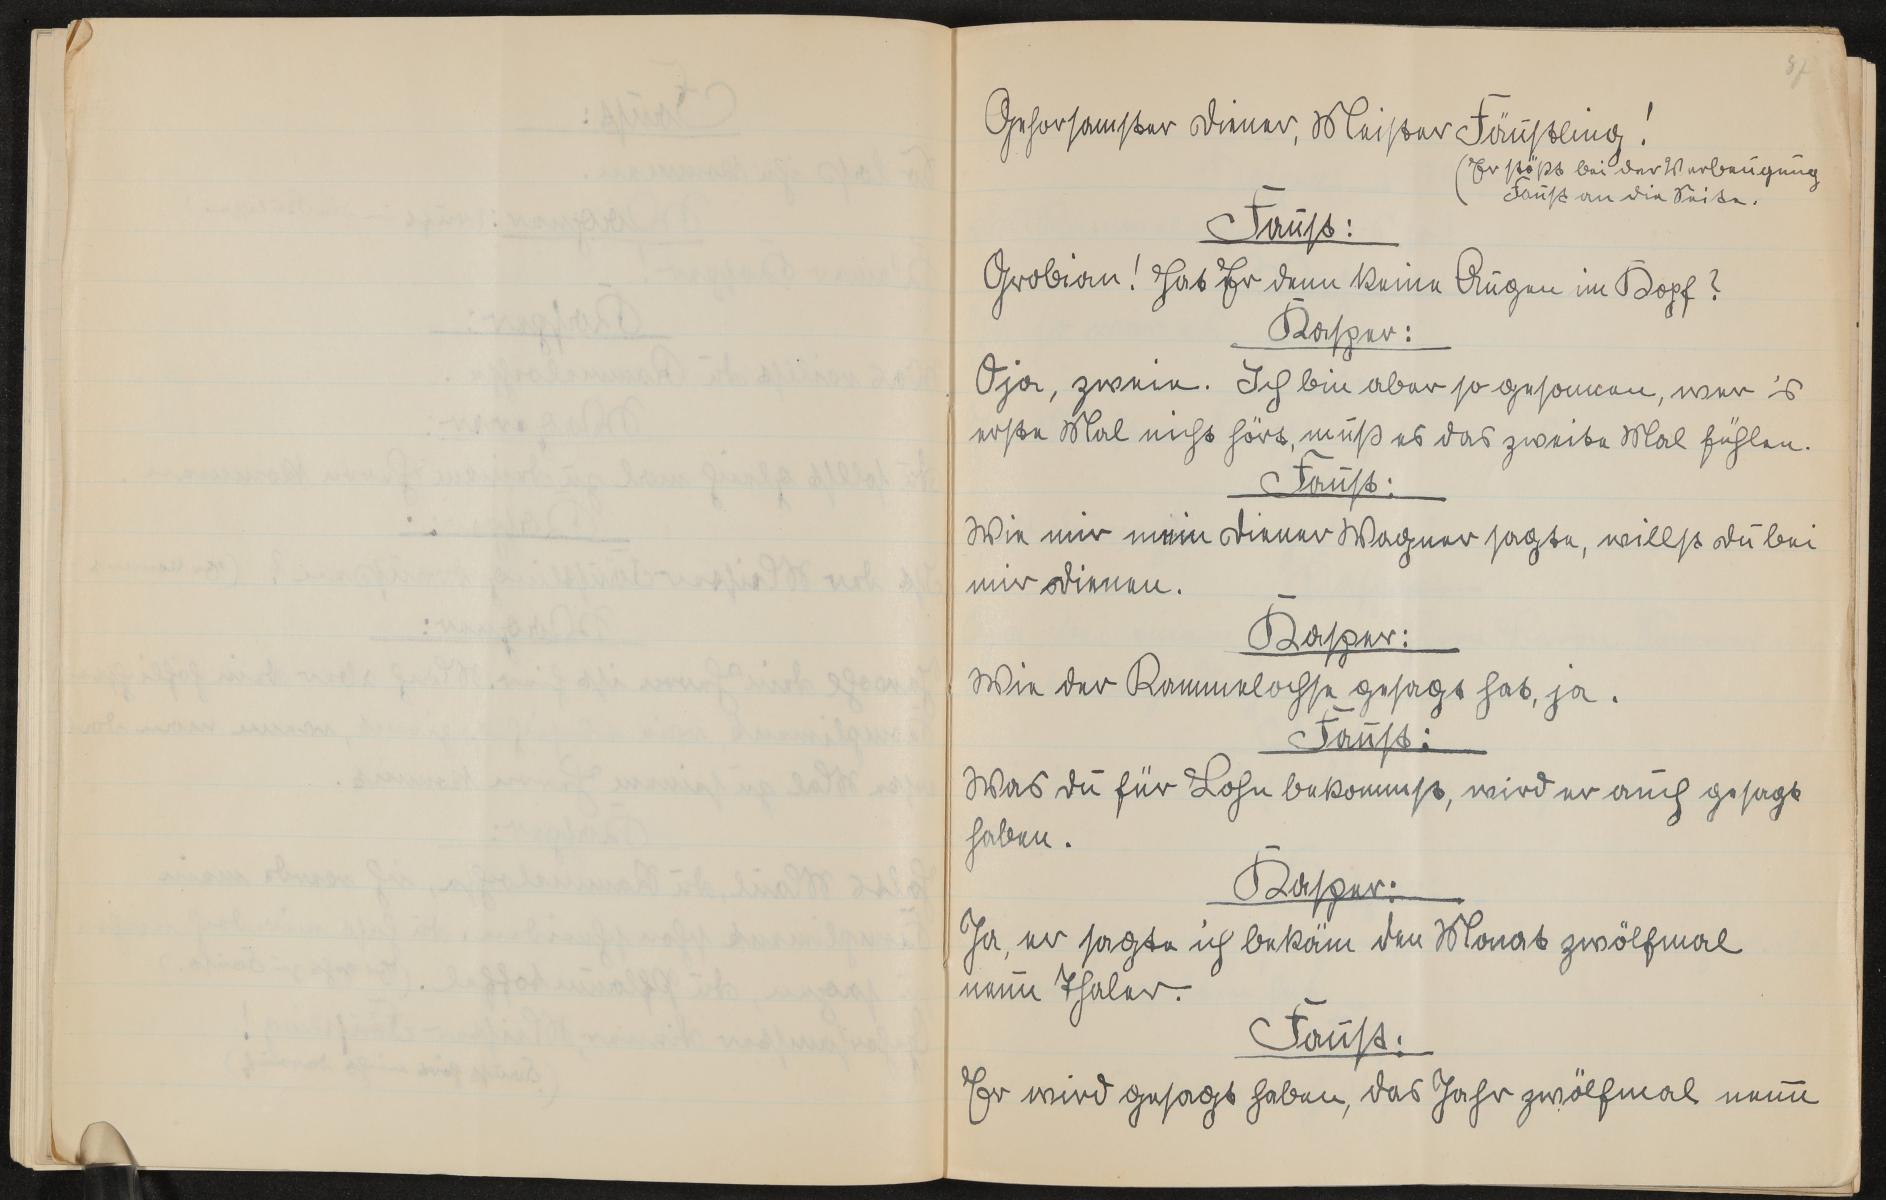 37
Gehorsamster Diener, Meister Fäustling!
(Er stößt bei der Verbeugung
Faust an die Seite.
Faust:
Grobian! Hat Er denn keine Augen im Kopf?
Kasper:
O ja, zweie. Ich bin aber so gesonnen, wer 's
erste Mal nicht hört, muß es das zweite Mal fühlen.
Faust:
Wie mir mein Diener Wagner sagte, willst du bei
mir dienen.
Kasper:
Wie der Rammelochse gesagt hat, ja.
Faust:
Was du für Lohn bekommst, wird er auch gesagt
haben.
Kasper:
Ja, er sagte ich bekäm den Monat zwölfmal
neun Thaler.
Faust:
Er wird gesagt haben, das Jahr zwölfmal neun